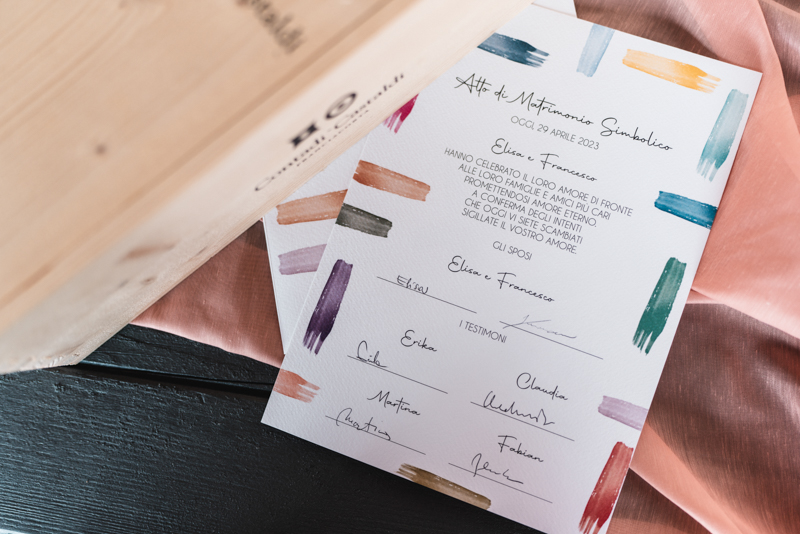 Contadi Castaldi
Atto di Matrimonio Simbolico
OGGI, 29 APRILE 2023
Elisa e Francesco
HANNO CELEBRATO IL LORO AMORE DI FRONTE
ALLE LORO FAMIGLIE E AMICI PIÙ CARI
PROMETTENDOSI AMORE ETERNO.
A CONFERMA DEGLI INTENTI
CHE OGGI VI SIETE SCAMBIATI
SIGILLATE IL VOSTRO AMORE.
GLI SPOSI
Elisa e Francesco
Elisa
I TESTIMONI
Erika
Claudia
Martina
Martina
Fabian